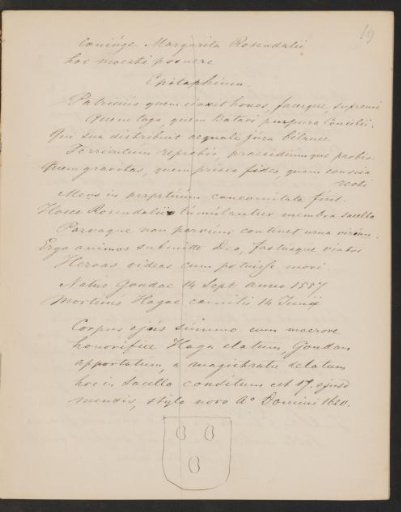 19
Coniuge Margarita Rosendalii
hoc moesti posuere
Epitaphium
Patricius quem honos, fascique supremi
Quem toga, quem Batavi purpura Concilii.
Qui sua distribuit aequali jura bilance
Terriculum reprobis, praesidiumque probis.
Quem gravitas, quem prisca fides, quem conscia
recti
Mens in perpetuum concomitata fuit.
Hoece Rosendalii tumulantur membra sacello
Parvaque non parvum continet urna virum.
Ergo animos submitte Deo, fastusque viator
Heroas videas cum potuisse mori
Natus Goudae 14 Sept anno 1557
Mortuus Hagae comitis 14 Junij
Corpus ejus summo cum maerore
honorifice Haga elatum Goudam
apportatum, a magistratu delatum
hoc in Sacello conditum est 17. ejusd
mensis, stylo novo Ao Domini 1620.